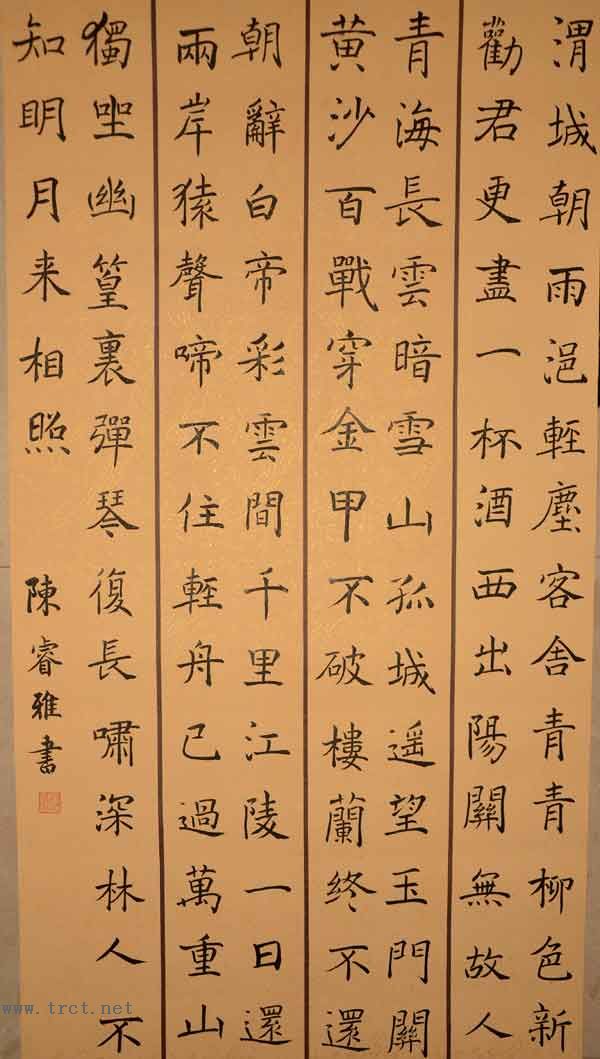 渭城朝雨浥輕塵客舍青青柳色新
勸君更盡一杯酒西出陽關無故人
青海長雲暗雪山孤城遥望玉門關
黄沙百戰穿金甲不破樓蘭終不還
朝辭白帝彩雲間千里江陵一日還
兩岸猿聲啼不住輕舟已過萬重山
獨坐幽篁裏彈琴復長嘯深林人不
知明月来相照
陳睿雅書
www.trct.net